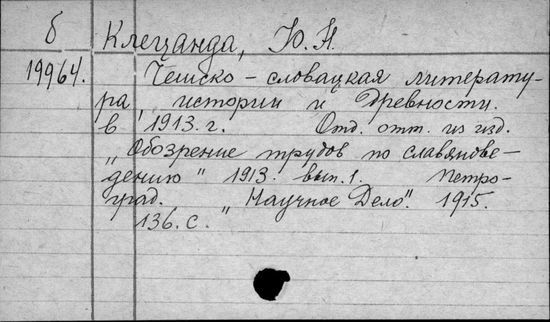 б Клецанда, Ю. Н.
19964. Чешско-словацкая литерату-
ра, истории и древности.
в 1913. г. Отд. отт. из изд.
„Обозрение трудов по славянове-
дению" 1913. вып. 1. Петро-
град. „Научное Дело". 1915.
136. с.